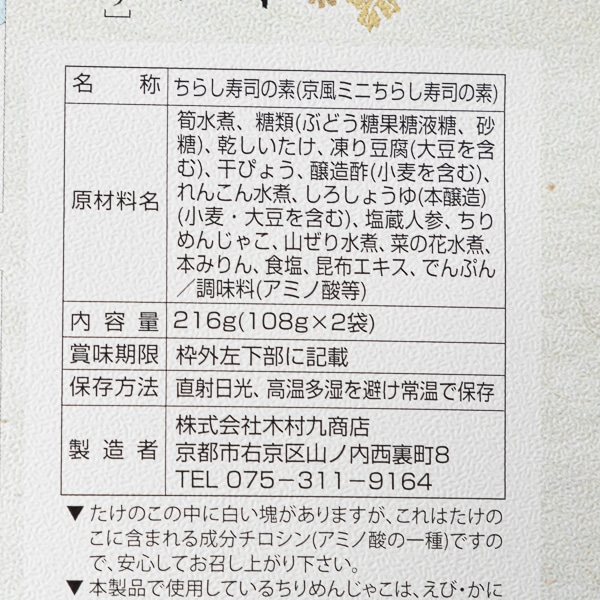 名称 ちらし寿司の素(京風ミニちらし寿司の素)
原材料名 筍水煮、糖類(ぶどう糖果糖液糖、砂
糖)、乾しいたけ、凍り豆腐(大豆を含
む)、干ぴょう、醸造酢(小麦を含む)、
れんこん水煮、しろしょうゆ(本醸造)
(小麦・大豆を含む)、塩蔵人参、ちり
めんじゃこ、山ぜり水煮、菜の花水煮、
本みりん、食塩、昆布エキス、でんぷん
/調味料(アミノ酸等)
内容量 216g(108g×2袋)
賞味期限 枠外左下部に記載
保存方法 直射日光、高温多湿を避け常温で保存
製造者 株式会社木村九商店
京都市右京区山ノ内西裏町8
TEL 075-311-9164
▼たけのこの中に白い塊がありますが、これはたけの
こに含まれる成分チロシン(アミノ酸の一種)ですの
で、安心してお召し上がり下さい。
▼本製品で使用しているちりめんじゃこは、えび・かに